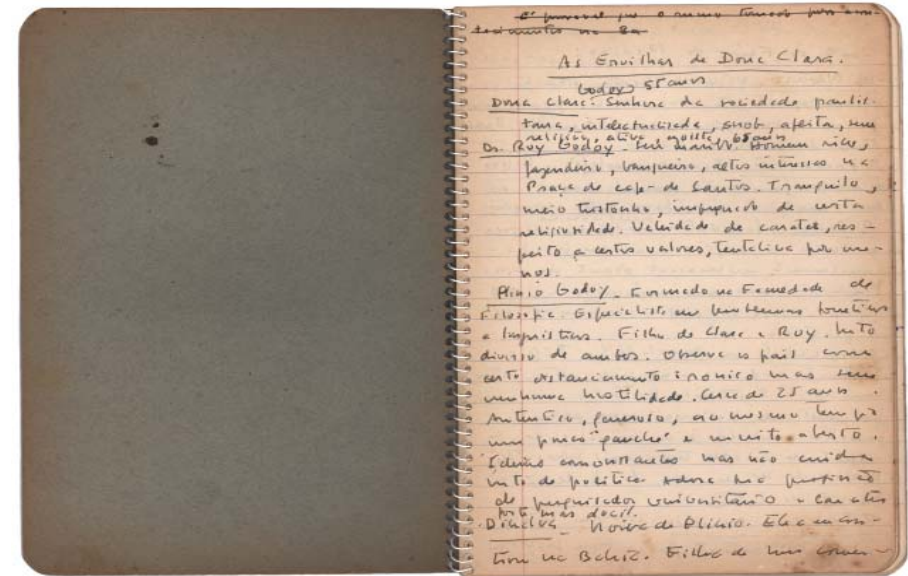 É provavel que o mesmo
tecimentos na
As Ervilhas de Dona Clara.
Godoy, 55 anos
Dona Clara: Senhora da sociedade paulis-
tana, intelectualizada, snob, aflita, sem
religião, ativa, 65 anos
Dr. Ruy Godoy - Seu marido. Homem rico,
fazendeiro, banqueiro, altos interesses na
Praça de café de Santos. Tranquilo,
meio tristonho, impregnado de certa
religiosidade. de carater, res-
peito a certos valores, tentativa por me-
nos.
Plinio Godoy. Formado na Faculdade de
Filosofia. Especialista em problemas foneticos
e linguisticos. Filho de Clara e Ruy. Muito
diverso de ambos. Observa os pais com
certo distanciamento ironico mas sem
nenhuma hostilidade. Cerca de 25 anos.
Autentico, generoso, ao mesmo tempo
um pouco "gauche" e muito aberto.
Ideias mas não cuida
de politica. Adora sua profissão
de pesquisador universitario. carater
forte mas docil.
Dinalva - Noiva de Plinio. Ele a encon-
trou na Bahia. Filha de um comer-